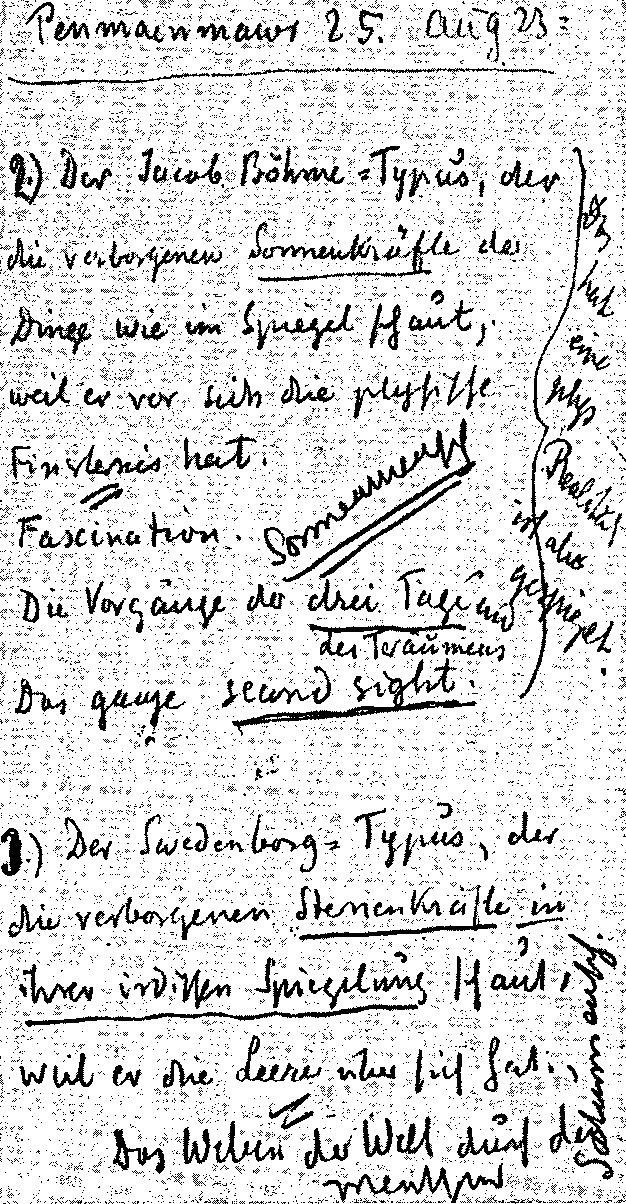 Penmaenmawr 25. Aug 23:
2.) Der Jacob Böhme=Typus, der
die verborgenen Sonnenkräfte der
Dinge wie im Spiegel schaut,
weil er vor sich die physische
Finsternis hat.
Fascination.
Sonnenaufg
Die Vorgänge der drei Tage und
des Träumens
Das ganze second sight.
hat
eine
phys
Realität
ist also
gespiegelt.
3.) Der Swedenborg=Typus, der
die verborgenen Sternenkräfte in
ihrer irdischen Spiegelung schaut,
weil er die Leere über sich hat.,
Das Weben der Welt durch den
Menschen